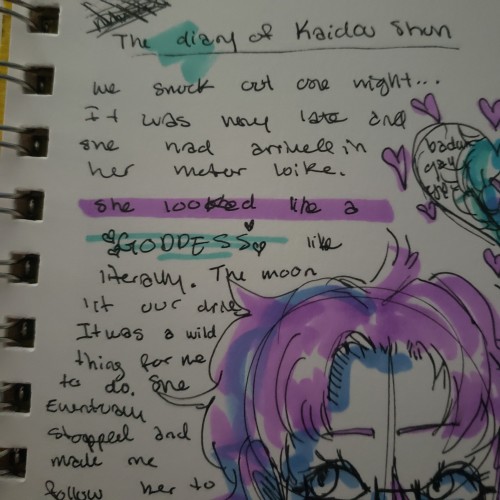 The diary of Kaidou Shun
we snuck out one night...
It was very late and
she had arrived in
her motor bike.
she looked like a
GODDESS like
literally. The moon
lit our drive
It was a wild
thing for me
to do. She
Eventually
stopped and
made me
follow her to